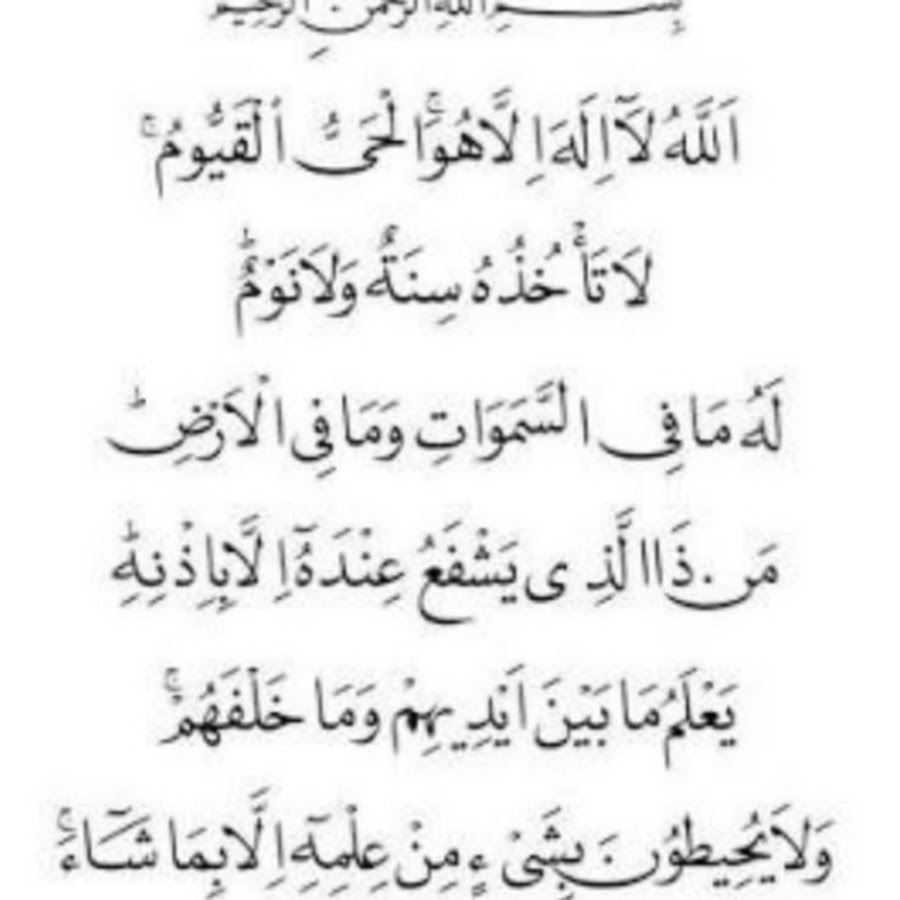 بِسْمِ اللّٰهِ الرَّحْمٰنِ الرَّحِيمِ
اَللّٰهُ لَآ اِلٰهَ اِلَّا هُوَۚ اَلْحَىُّ الْقَيُّومُۚ
لَا تَأْخُذُهُ سِنَةٌ وَلَا نَوْمٌؕ
لَهُ مَا فِى السَّمَوَاتِ وَمَا فِى الْاَرْضِؕ
مَنْ ذَا الَّذِى يَشْفَعُ عِنْدَهُٓ اِلَّا بِاِذْنِهِؕ
يَعْلَمُ مَا بَيْنَ اَيْدِيهِمْ وَمَا خَلْفَهُمْۚ
وَلَا يُحِيطُونَ بِشَىْءٍ مِنْ عِلْمِهِٓ اِلَّا بِمَا شَٓاءَۚ